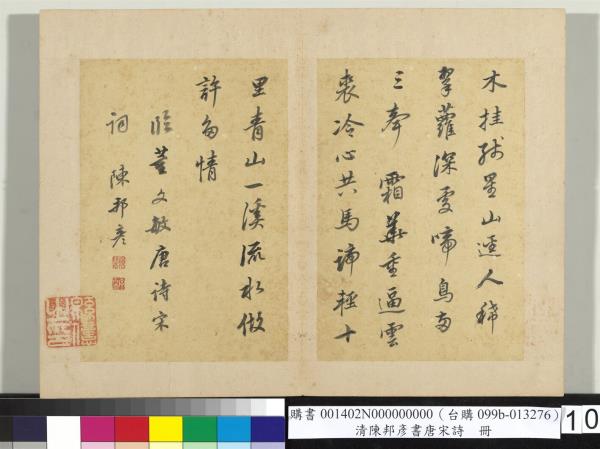 木挂殘星山逕人稀
翠蘿深處啼鳥兩
三聲 霜華重逼雲
裘冷心共馬蹄輕十
里青山一溪流水做
許多情
臨董文敏唐詩宋
詞 陳邦彦
購書 001402N000000000（台購 099b-013276）
清陳邦彥書唐宋詩 冊
10